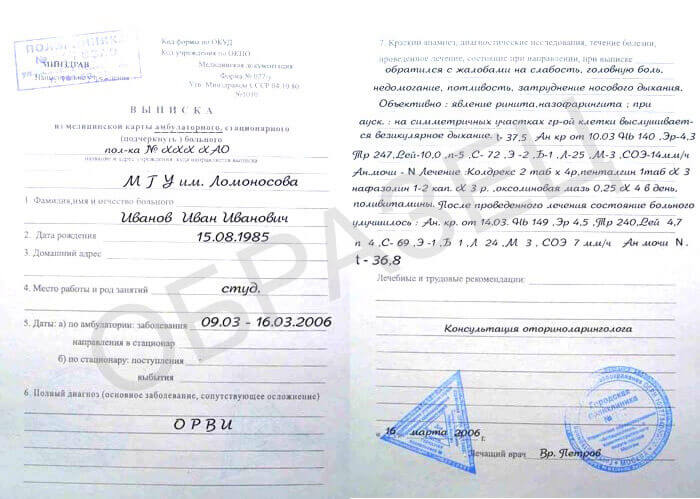 ПОЛИКЛИНИКА
№
МИНЗДРАВ
Наименование учреждения
Код формы по ОКУД
Код учреждения по ОКПО
Медицинская документация
Форма № 027/у
Утв. Минздравом СССР 04.10.80
№1030
ВЫПИСКА
из медицинской карты амбулаторного, стационарного
(подчеркнуть) больного
пол-ка № ХХХ ХАО
название и адрес учреждения, куда направляется выписка
МГУ им. Ломоносова
1. Фамилия, имя и отчество больного
Иванов Иван Иванович
2. Дата рождения 15.08.1985
3. Домашний адрес
4. Место работы и род занятий студ.
5. Даты: а) по амбулатории: заболевания 09.03 - 16.03.2006
направления в стационар
б) по стационару: поступления
выбытия
6. Полный диагноз (основное заболевание, сопутствующее осложнение)
ОРВИ
7. Краткий анамнез, диагностические исследования, течение болезни,
проведенное лечение, состояние при направлении, при выписке
обратился с жалобами на слабость, головную боль,
недомогание, потливость, затруднение носового дыхания.
Объективно : явление ринита,назофарингита ; при
ауск. : на симметричных участках гр-ой клетки выслушивает-
ся везикулярное дыхание. t- 37,5 . Ан кр от 10.03 Чb 140 ,Эр-4,3
Тр 247,Лей-10,0 п-5 .С- 72 ,Э -2 ,Б-1 ,Л-25 ,М-3 ,СОЭ-14мм/ч
Ан.мочи - N Лечение :Колдрекс 2 таб х 4р,пенталгин 1таб х 3
нафазолин 1-2 кап. х 3 р. ,оксолиновая мазь 0,25 х 4 в день,
поливитамины. После проведенного лечения состояние больного
улучшилось : Ан. кр. от 14.03. Чb 149 ,Эр 4,5 ,Тр 240,Лей 4,7
п 4 ,С- 69 ,Э -1 ,Б 1 ,Л 24 ,М 3 , СОЭ 7 мм/ч Ан мочи N .
t - 36,8
Лечебные и трудовые рекомендации:
Консультация оториноларинголога
Городская
поликлиника
№
" 16 " марта 2006 г.
Лечащий врач Вр. Петров
ОБРАЗЕЦ